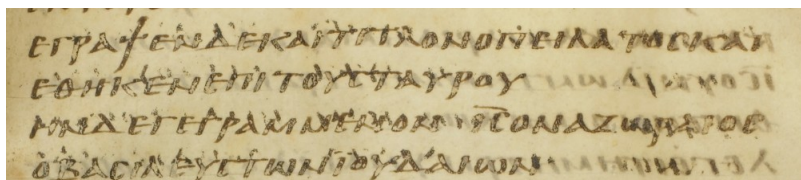 ΕΓΡΑΨΕΝΔΕΚΑΙΤΙΤΛΟΝΟΠΕΙΛΑΤΟϹΚΑΙ
ΕΘΗΚΕΝΕΠΙΤΟΥϹΤΑΥΡΟΥ
ΗΝΔΕΓΕΓΡΑΜΜΕΝΟΝ Ι̅Ϲ̅ΟΝΑΖΩΡΑΙΟϹ
ΟΒΑϹΙΛΕΥϹΤΩΝΙΟΥΔΑΙΩΝ